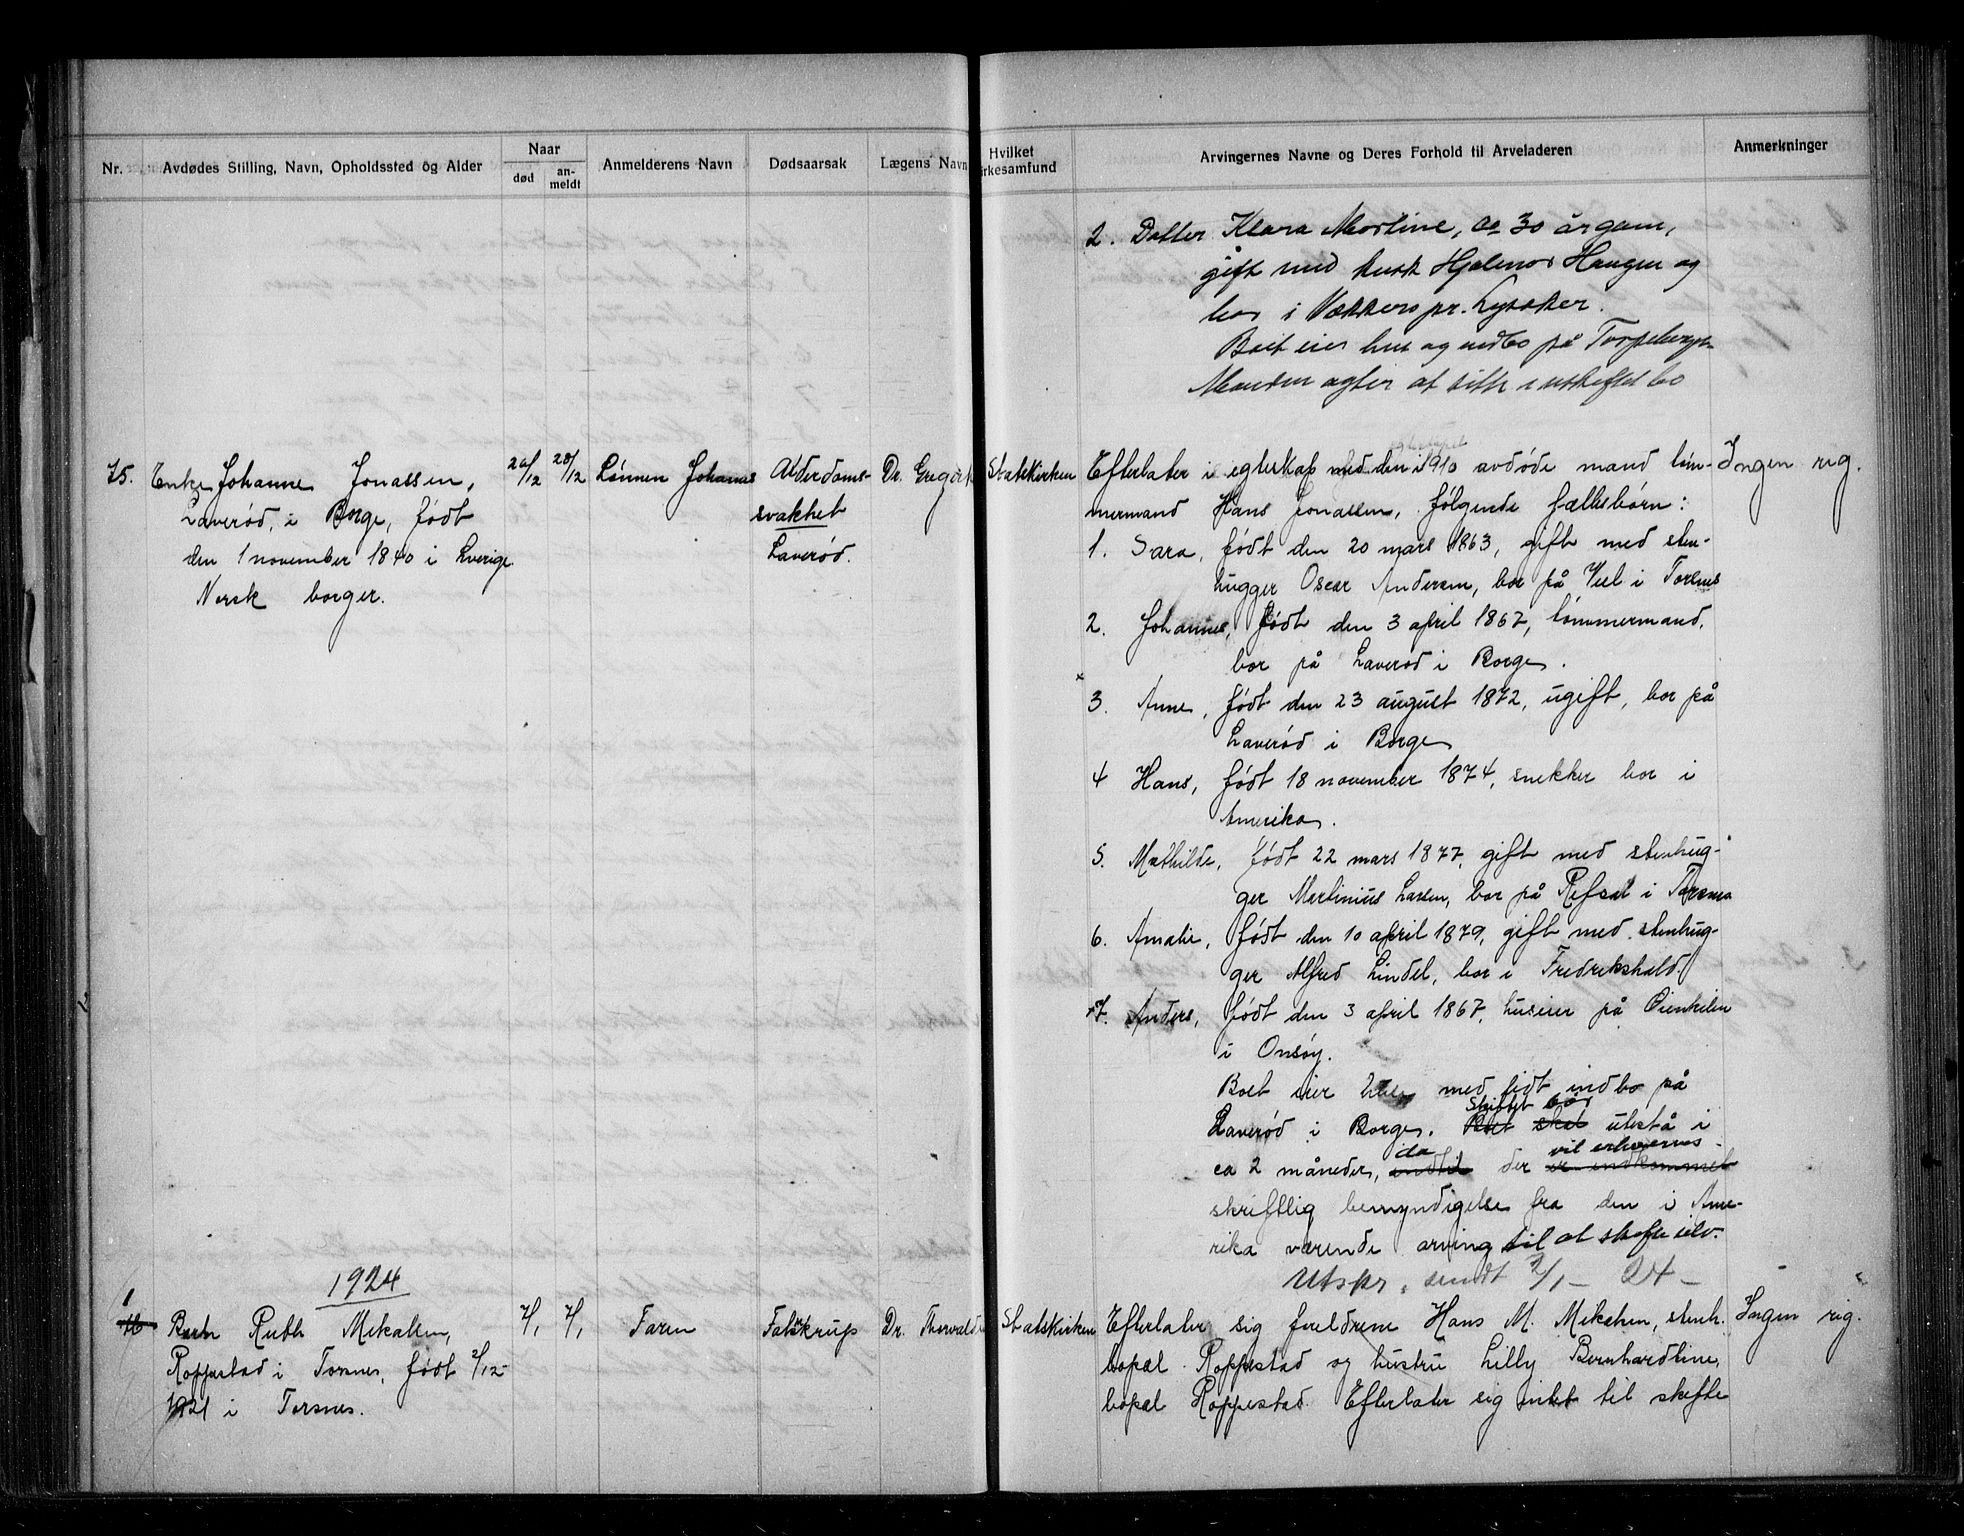 Nr. Avdødes Stilling, Navn, Opholdssted og Alder Naar død an-meldt Anmelderens Navn Dødsaarsak Lægens Navn Hvilket irkesamfund Arvingernes Navne og Deres Forhold til Arveladeren Anmerkninger
2. Datter Klara Martine, ca 30 år gam,
gift med kusk Hjalmar Haugen og
bor i Vækkerø pr. Lysaker.
Boet eier hus og indbo på Torpeberget
Manden agter at sitte i uskiftet bo
75. Enke Johanne Jonassen,
Laverød, i Borge, født
den 1 november 1840 i Sverige.
Norsk borger.
20/12 28/12
Sønnen Johannes
Alderdoms-
svakhet
Laverød.
Dr. Gregers
Statskirken
Efterlater i egteskap med den i 1910 avdøde mand tøm-
mermand Hans Jonassen, følgende fællesbørn:
1. Sara, født den 20 mars 1863, gift med sten-
hugger Oscar Andersen, bor på Ul i Torsnes
2. Johannes, født den 3 april 1867, tømmermand,
bor på Laverød i Borge.
3. Anne, født den 23 august 1872, ugift, bor på
Laverød i Borge
4 Hans, født 18 november 1874, snekker bor i
Amerika.
5. Mathilde, født 22 mars 1877, gift med stenhug-
ger Martinius Larsen, bor på Refsal i Torsnes
6. Amalie, født den 10 april 1879, gift med stenhug-
ger Alfred Lindel, bor i Fredrikshald.
7. Anders, født den 3 april 1867, huseier på Øienkilen
i Onsøy.
Boet eier med lidt indbo på
Laverød i Borge. Boet skal Skiftet bør utestå i
ca 2 måneder, indtil da der er indkommet vil erhverves
skriftlig bemyndigelse fra den i Ame-
rika værende arving til at skifte selv.
Utskr. sendt 2/1 - 24 -
Ingen rig.
1924
1
76 Barn Ruth Mikalsen,
Roppestad i Torsnes, født 2/12
1921 i Torsnes.
7/1 7/1
Faren
Falsk krup
Dr. Thorvaldsen
Statskirken
Efterlater sig foreldrene Hans M. Mikalsen, stenh.
bopæl Roppestad og hustru Lilly Bernhardtine,
bopæl Roppestad. Efterlater sig intet til skifte
Ingen rig.